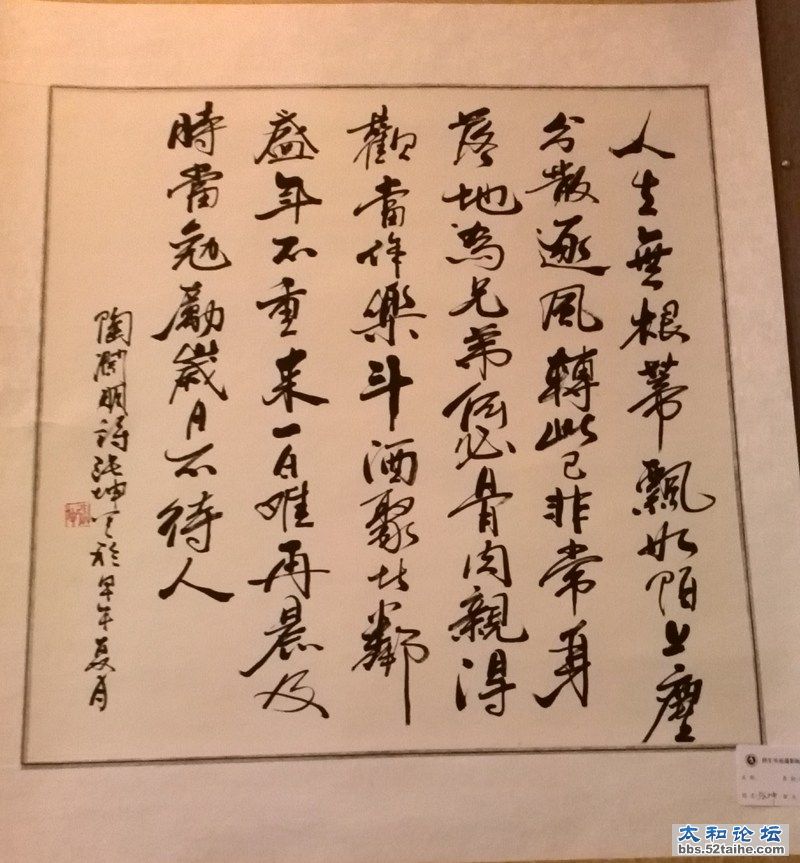 人生無根蒂飄如陌上塵
分散逐風轉此已非常身
落地為兄弟何必骨肉親得
觀當作樂斗酒聚比鄰
盛年不重来一日難再晨及
時當勉勵歲月不待人
陶淵明詩張坤書於甲午夏月
太和论坛
bbs.52taihe.com